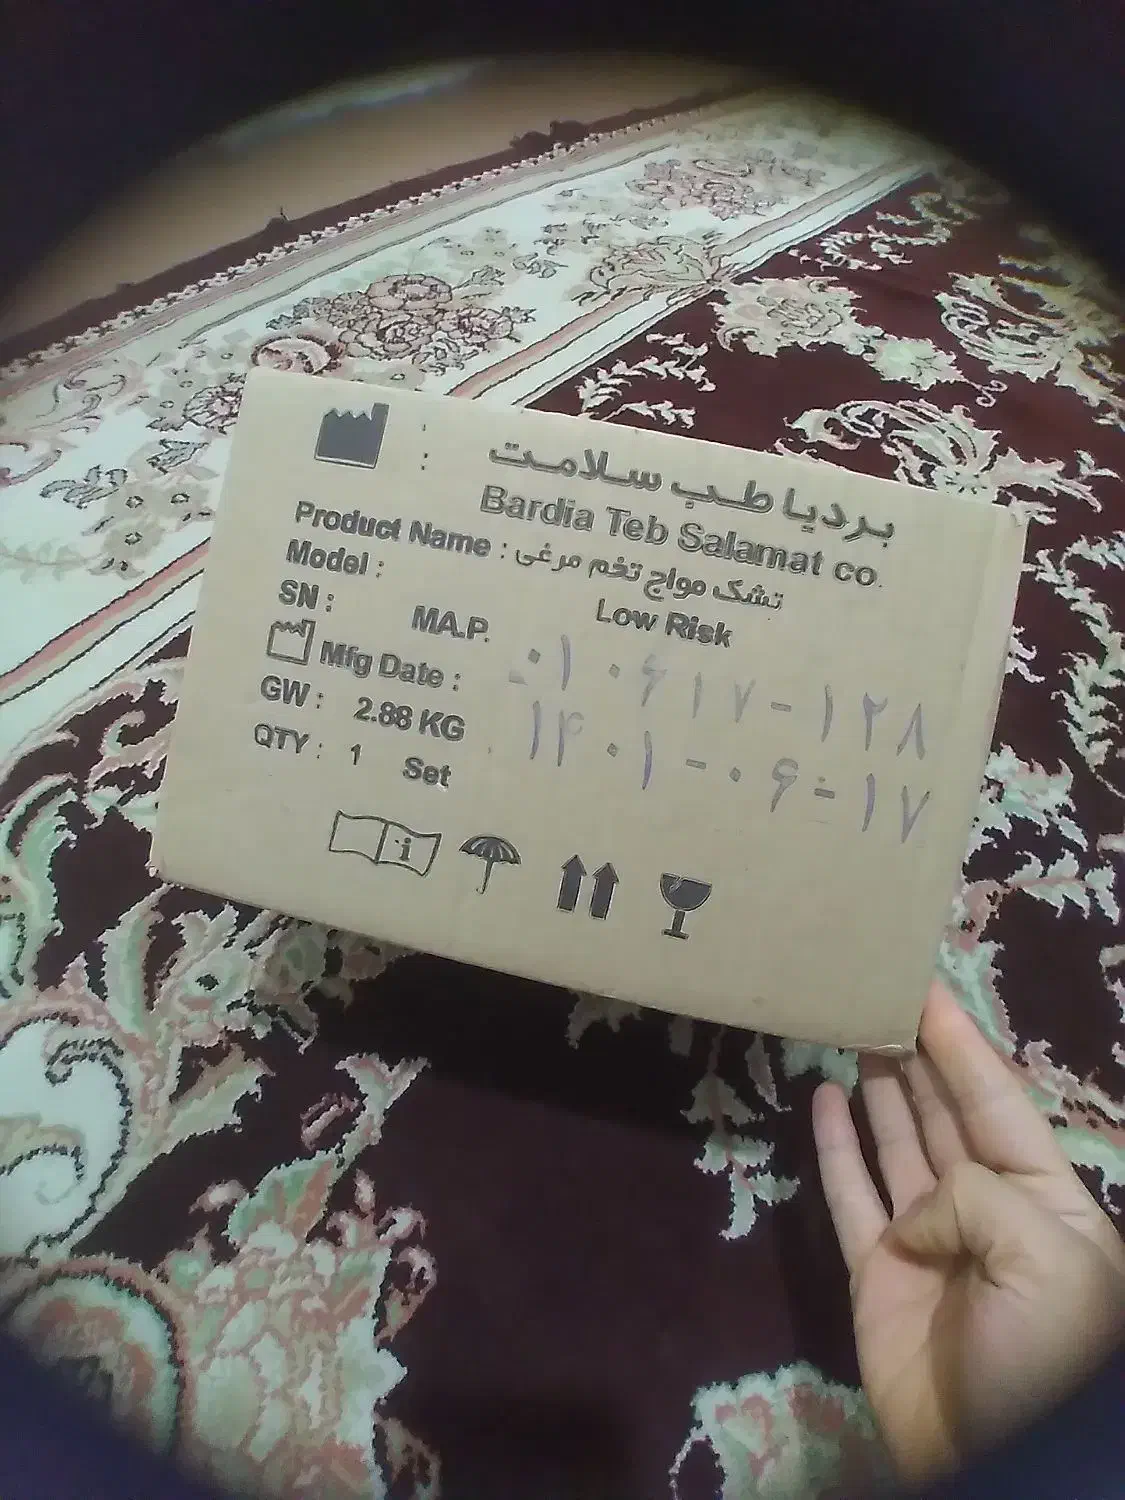 : بردیا طب سلامت
Bardia Teb Salamat co.
Product Name : تشک مواج تخم مرغی
Model : Low Risk
SN : MA.P. ۰۱۰۶۱۷-۱۲۸
Mfg Date : ۱۴۰۱-۰۶-۱۷
GW : 2.88 KG
QTY : 1 Set
i